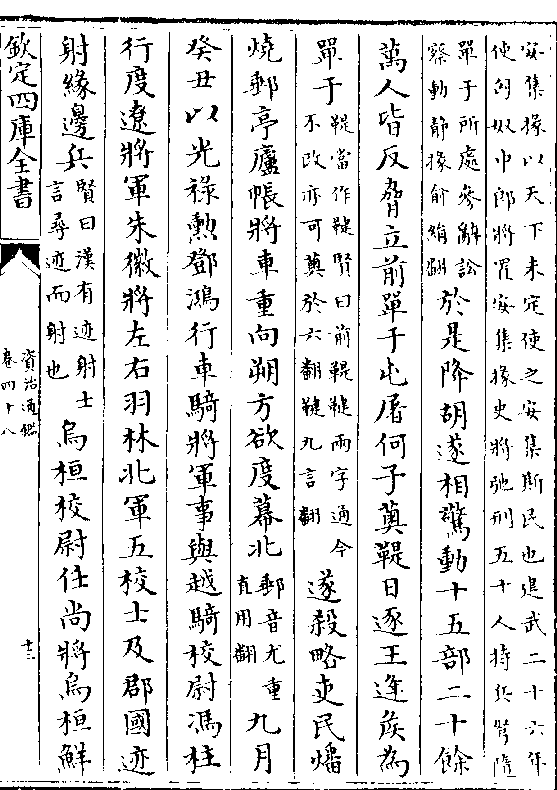 安集掾以天下未定使之安集斯民也建武二十六年
使匈奴中郎將置安集掾史將弛刑五十人持兵弩隨
單于所處參辭訟
察動静掾俞絹翻
於是降胡遂相驚動十五部二十餘
萬人皆反脅立前單于屯屠何子薁鞮日逐王逢侯為
單于
鞮當作鞬賢曰前鞮鞬兩字通今
不改亦可薁於六翻鞬九言翻
遂殺略吏民燔
燒郵亭廬帳將車重向朔方欲度幕北
郵音尤重
直用翻
九月
癸丑以光祿勲鄧鴻行車騎將軍事與越騎校尉馮柱
行度遼將軍朱徽將左右羽林北軍五校士及郡國迹
射緣邊兵
賢曰漢有迹射士
言尋迹而射也
烏桓校尉任尚將烏桓鮮
欽定四庫全書
資治通鑑
卷四十八
十三